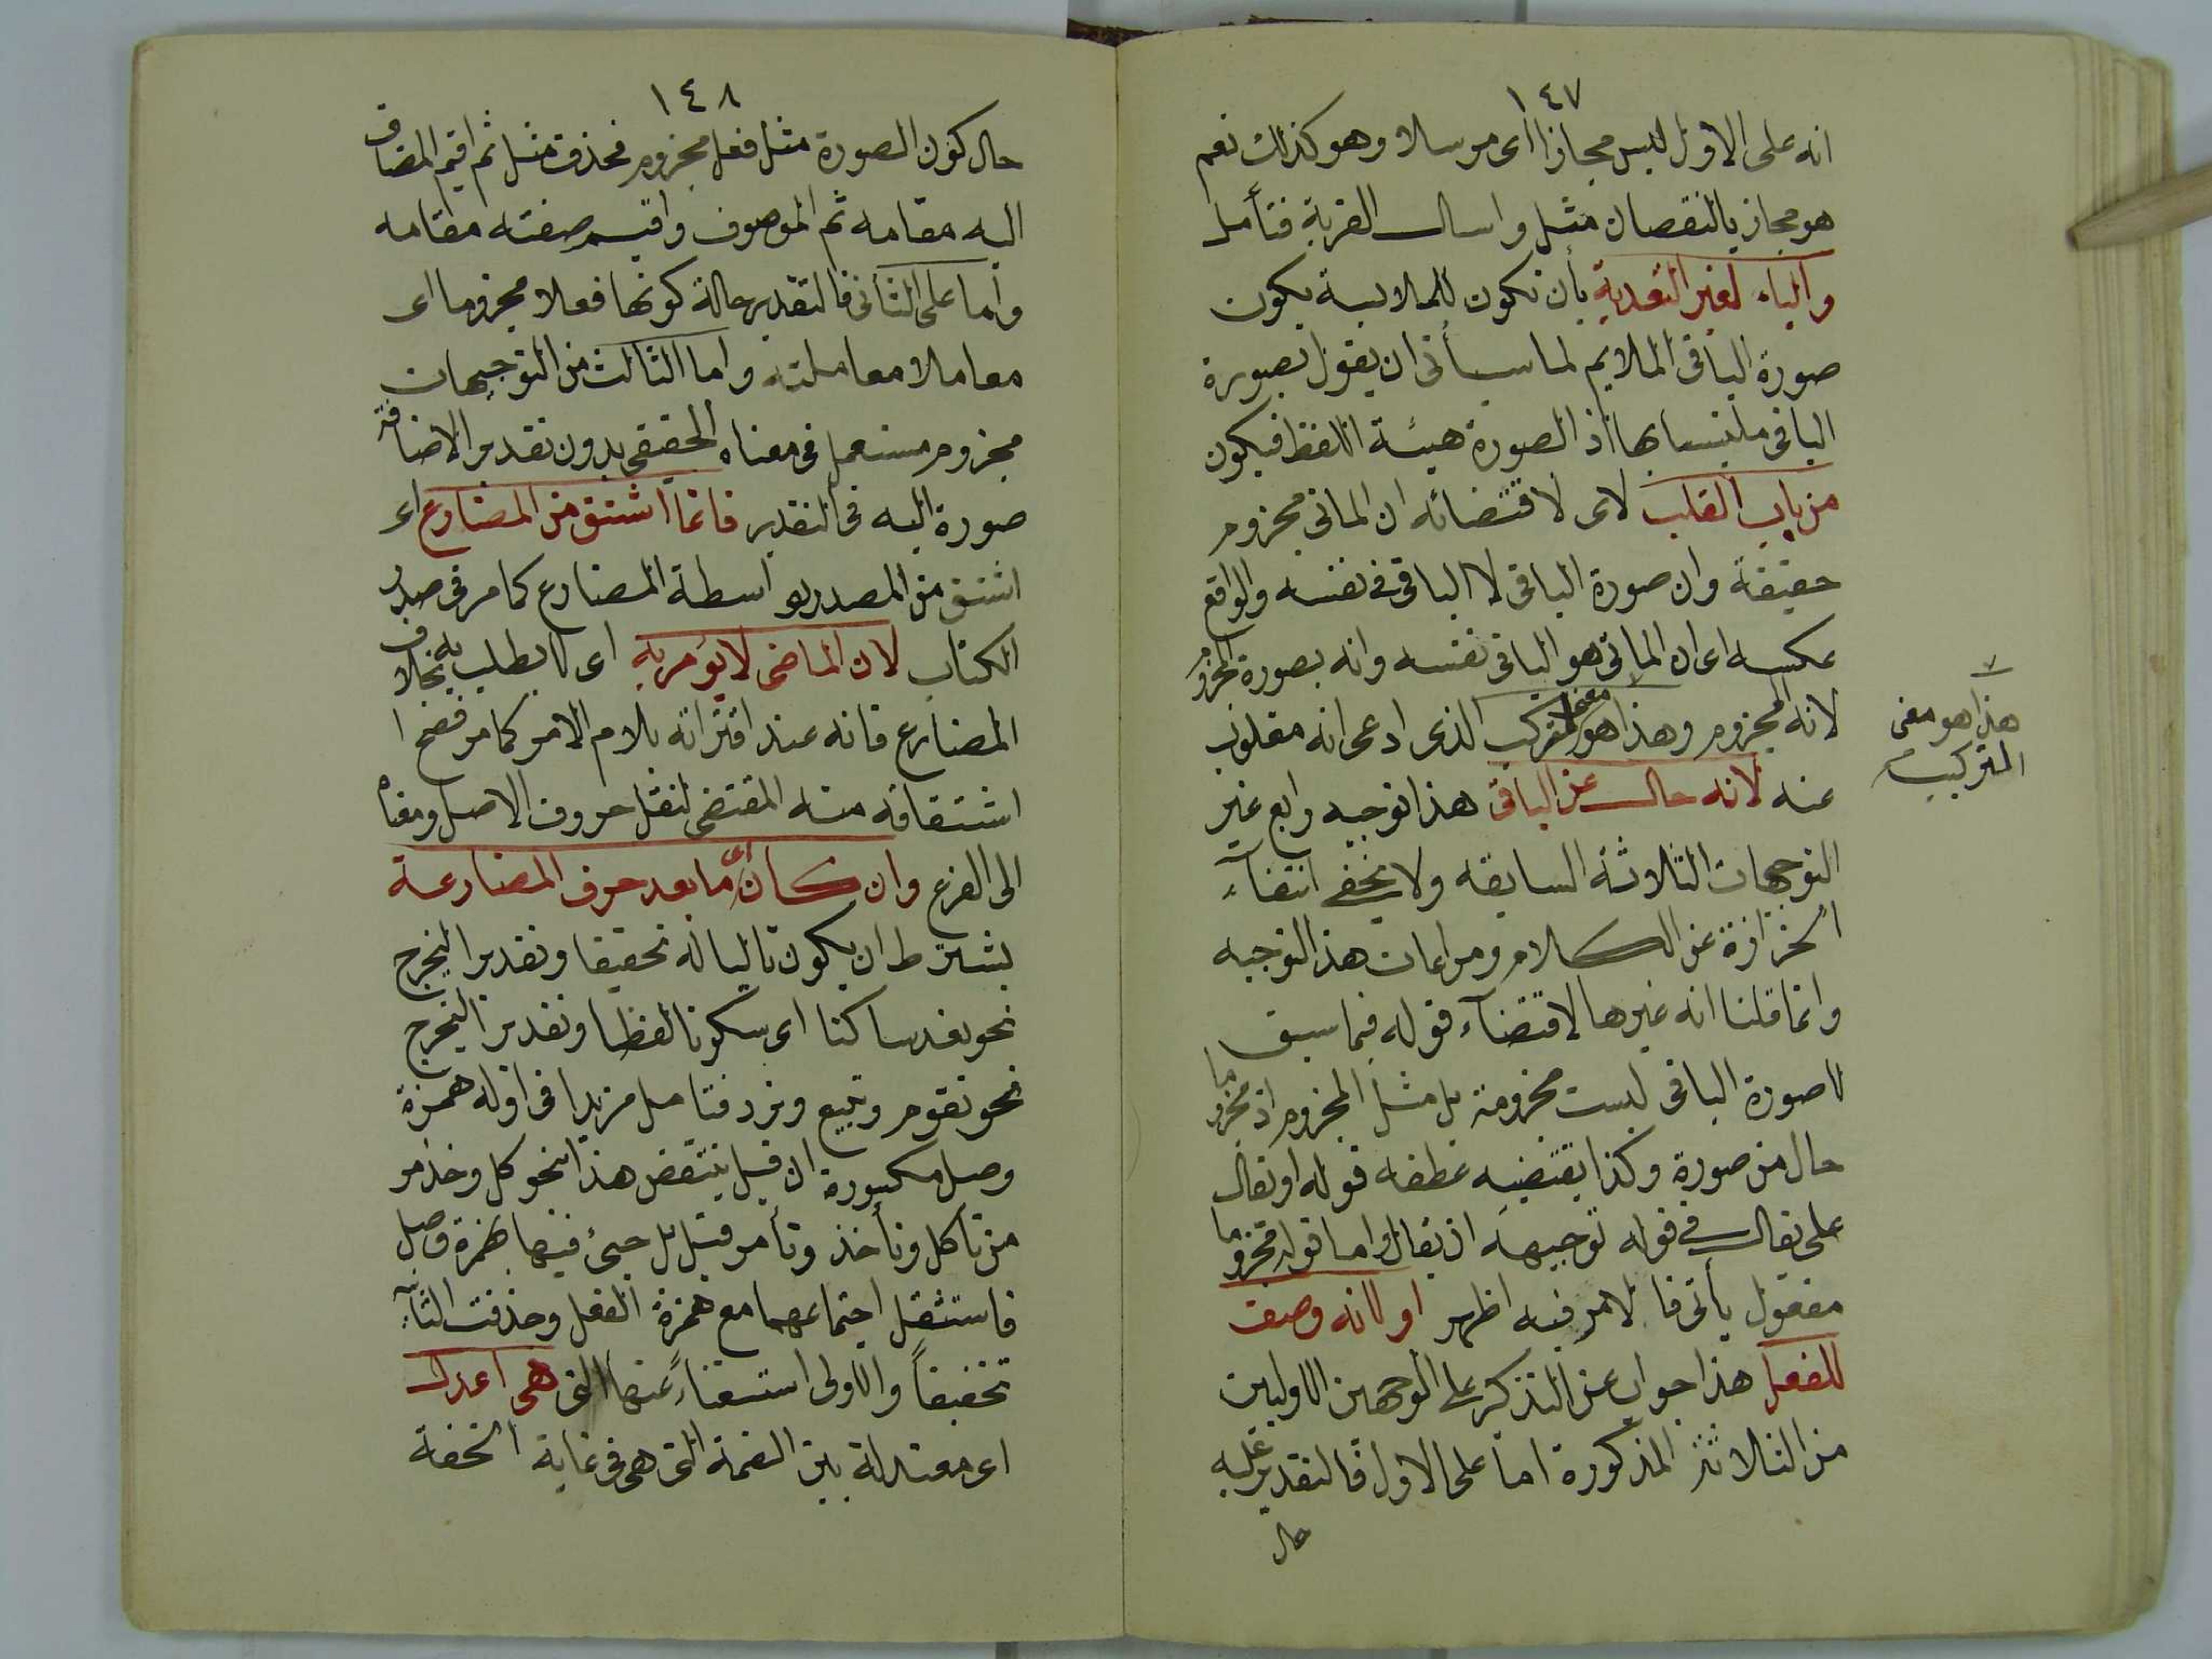 ١٤٧
انه على الاول ليس مجازا اى مرسلا وهو كذلك نعم
هو مجاز بالنقصان مثل واسال القرية فتأمل
والباء لغير التعدية بأن تكون للملابسة يكون
صورة الباقى الملايم لما سيأتى ان يقول بصورة
الباقى ملتبسا بها اذ الصورة هيئة اللفظ فيكون
من باب القلب لاى لاقتضائه ان الماتى مجزوم
حقيقة وان صورة الباقى لا الباقى فى نفسه والواقع
عكسه اى ان الماتى هو الباقى نفسه وانه بصورة المجزوم
لانه المجزوم وهذا هو معنى التركيب الذى ادعى انه مقلوب
هذا هو معنى
التركيب
عنه لانه حال عن الباقى هذا توجيه رابع غير
التوجيهات الثلاثة السابقه ولا يخفى انتفآء
الحزازة عن الكلام ومراعات هذا التوجيه
وانما قلنا انه غيرها لاقتضآء قوله فيما سبق
لا صورة الباقى ليست مجزومة بل مثل المجزوم اذ مجزوما
حال من صورة وكذا يقتضيه عطفه قوله او يقال
على يقال فى قوله توجيهه ان يقال واما قوله مجزوما
مفعول يأتى فالامر فيه اظهر او لانه وصف
للفعل هذا جواب عن التذكير على الوجهين الاوليين
من الثلاثة المذكورة اما على الاول فالتقدير عليه
حال
١٤٨
حال كون الصورة مثل فعل مجزوم فحذف مثل ثم اقيم المضاف
اليه مقامه ثم الموصوف واقيم صفته مقامه
وأما على الثانى فالتقدير حالة كونها فعلا مجزوما اى
معاملا معاملته واما الثالث من التوجيهات
مجزوم مستعمل فى معناه الحقيقى بدون تقدير الاضافة
صورة اليه فى التقدير فانما اشتق من المضارع اى
اشتق من المصدر بواسطة المضارع كما مر فى صدر
الكتاب لان الماضى لا يؤمر به اى لا يطلب به بخلاف
المضارع فانه عند اقترانه بلام الامر كما مر فصح ا
اشتقاقه منه المقتضى لنقل حروف الاصل ومعناه
الى الفرع وان كان اى ما بعد حرف المضارعة
بشترط ان يكون تاليا له تحقيقا وتقديرا ليخرج
نحو يعد ساكنا اى سكونا لفظا وتقديرا ليخرج
نحو تقوم وتبيع وتزد فتامل مزيدا فى اوله همزة
وصل مكسورة ان قيل ينتقض هذا بنحو كل وخذ ومر
من تاكل وتأخذ وتأمر قيل بل جئ فيها بهمزة وصل
فاستثقل اجتماعهما مع همزة الفعل وحذفت الثانية
تخفيفاً والاولى استغناءً عنها التى هى اعدل
اى معتدلة بين الضمة التى هى فى غاية الخفة